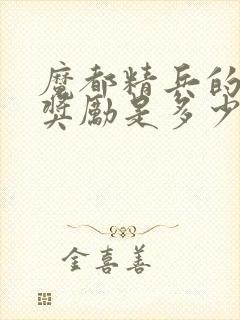 魔都精兵的
奖励是多少
金喜善